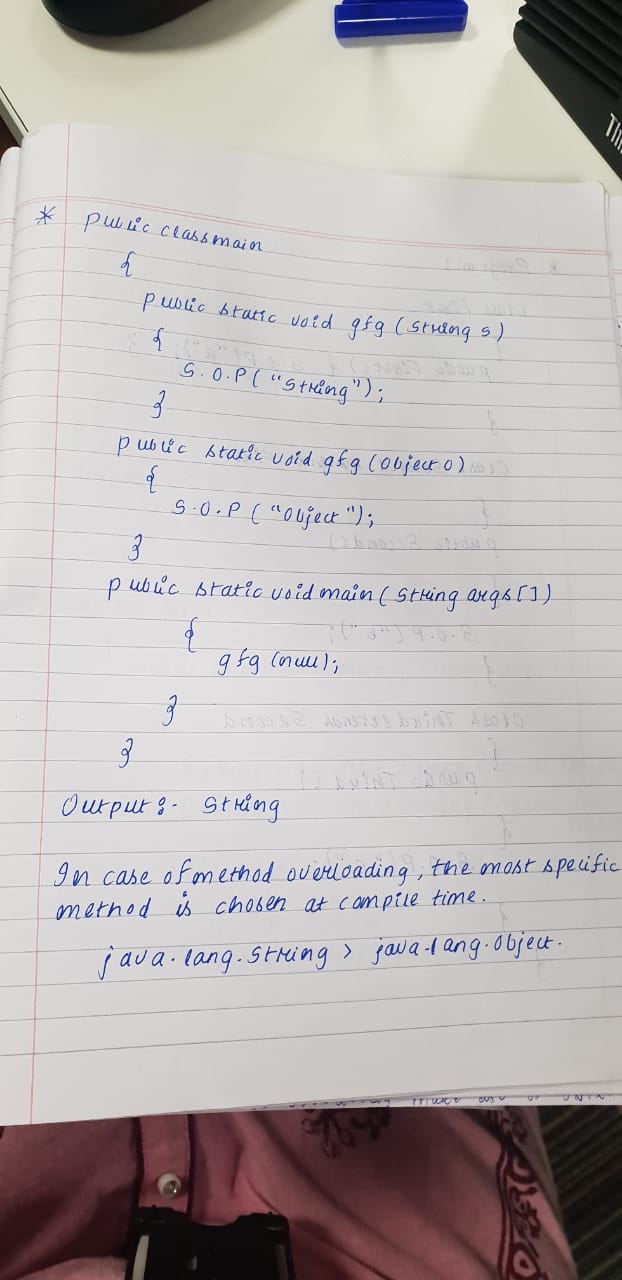 * public class main
{
public static void gfg (String s)
{
S.O.P ("String");
}
public static void gfg (Object o)
{
S.O.P ("Object");
}
public static void main (String args [])
{
gfg (null);
}
}
Output :- String
In case of method overloading, the most specific
method is chosen at compile time.
java.lang.String > java.lang.Object.